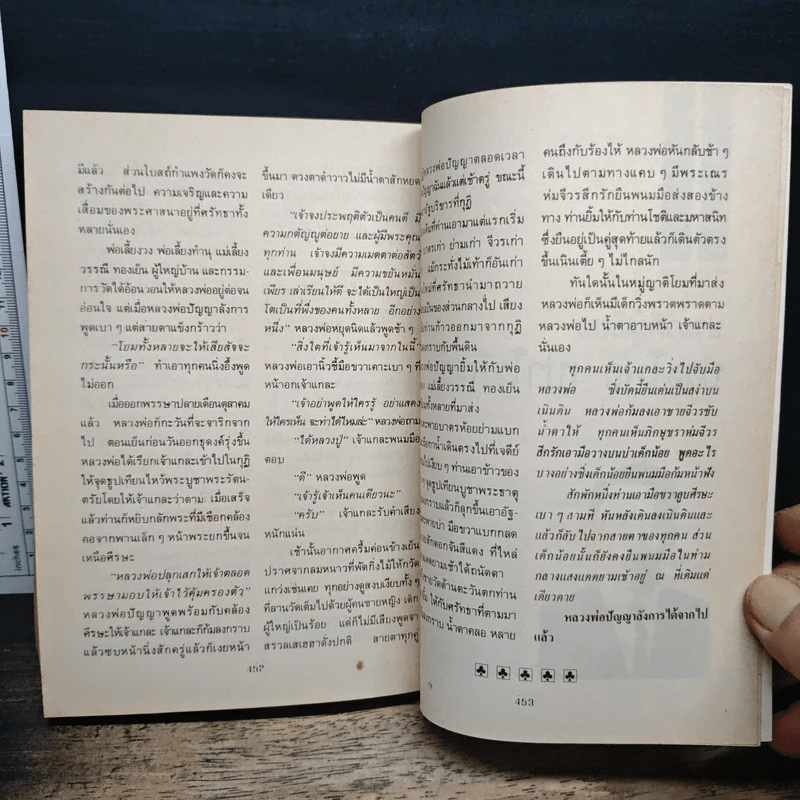 มีแล้ว ส่วนโบสถ์กำแพงวัดก็คงจะ
สร้างกันต่อไป ความเจริญและความ
เสื่อมของพระศาสนาอยู่ที่ศรัทธาทั้ง
หลายนั่นเอง
พ่อเลี้ยงวง พ่อเลี้ยงทำนุ แม่เลี้ยง
วรรณี ทองเย็น ผู้ใหญ่บ้าน และกรรม-
การวัดได้อ้อนวอนให้หลวงพ่ออยู่ต่อจน
อ่อนใจ แต่เมื่อหลวงพ่อปัญญาลังการ
พูดเบา ๆ แต่สายตาแข็งกร้าวว่า
“โยมทั้งหลายจะให้เสียสัจจะ
กระนั้นหรือ” ทำเอาทุกคนนิ่งอึ้งพูด
ไม่ออก
เมื่อออกพรรษาปลายเดือนตุลาคม
แล้ว หลวงพ่อก็กะวันที่จะจาริกจาก
ไป ตอนเย็นก่อนวันออกธุดงค์รุ่งขึ้น
หลวงพ่อได้เรียกเจ้าแกละเข้าไปในกุฏิ
ให้จุดธูปเทียนไหว้พระบูชาพระรัตน-
ตรัยโดยให้เจ้าแกละว่าตาม เมื่อเสร็จ
แล้วท่านก็หยิบกลักพระที่มีเชือกคล้อง
คอจากพานเล็ก ๆ หน้าพระยกขึ้นจน
เหนือศีรษะ
“หลวงพ่อปลุกเสกให้เจ้าตลอด
พรรษามอบให้เจ้าไว้คุ้มครองตัว”
หลวงพ่อปัญญาพูดพร้อมกับคล้อง
ศีรษะให้เจ้าแกละ เจ้าแกละก็ก้มลงกราบ
แล้วซบหน้านิ่งสักครู่แล้วก็เงยหน้า
452
ขึ้นมา ดวงตาดำวาวไม่มีน้ำตาสักหยด
เดียว
“เจ้าจงประพฤติตัวเป็นคนดี มี
ความกตัญญูต่อยาย และผู้มีพระคุณ
ทุกท่าน เจ้าจงมีความเมตตาต่อสัตว์
และเพื่อนมนุษย์ มีความขยันหมั่น
เพียร เล่าเรียนให้ดี จะได้เป็นใหญ่เป็น
โตเป็นที่พึ่งของคนทั้งหลาย อีกอย่าง
หนึ่ง” หลวงพ่อหยุดนิดแล้วพูดช้า ๆ
“สิ่งใดที่เจ้ารู้เห็นมาจากในนี้”
หลวงพ่อเอานิ้วชี้มือขวาเคาะเบา ๆ ที่
หน้าอกเจ้าแกละ
“เจ้าอย่าพูดให้ใครรู้ อย่าแสดง
ให้ใครเห็น จะทำได้ไหมล่ะ” หลวงพ่อถาม
“ได้หลวงปู่” เจ้าแกละพนมมือ
ตอบ
“ดี” หลวงพ่อพูด
“เจ้ารู้เจ้าเห็นคนเดียวนะ”
“ครับ” เจ้าแกละรับคำเสียง
หนักแน่น
เช้านั้นอากาศครึ้มค่อนข้างเย็น
ปราศจากลมหนาวที่พัดกิ่งไม้ให้กวัด
แกว่งเช่นเคย ทุกอย่างดูสงบเงียบทั้ง ๆ
ที่ลานวัดเต็มไปด้วยผู้คนชายหญิง เด็ก
ผู้ใหญ่เป็นร้อย แต่ก็ไม่มีเสียงพูดจา
สรวลเสเฮฮาดังปกติ สายตาทุกคู่
หลวงพ่อปัญญาตลอดเวลา
ปัญญาฉันแล้วแต่เช้าตรู่ ขณะนี้
บริขารที่กุฏิ
ที่ท่านเอามาแต่แรกเริ่ม
เก่า ย่ามเก่า จีวรเก่า
แม้กระทั่งไม้เท้าก็อันเก่า
ที่ศรัทธานำมาถวาย
เป็นของส่วนกลางไป เสียง
ท่านก้าวออกมาจากกุฏิ
กราบกับพื้นดิน
ปัญญายิ้มให้กับพ่อ
แม่เลี้ยงวรรณี ทองเย็น
ทั้งหลายที่มาส่ง
สะพายบาตรห้อยย่ามแบก
น้ำเดินตรงไปที่เจดีย์
ไปเงียบ ๆ ท่านเอาข้าวของ
จุดธูปเทียนบูชาพระธาตุ
กราบแล้วก็ลุกขึ้นเอาอัฐ-
สะพายบ่า มือขวาแบกกลด
สักดอกจันสีแดง ที่ไหล่
แดดยามเช้าได้ถนัดตา
ชายวัดด้านตะวันตกท่าน
ให้กับศรัทธาที่ตามมา
กราบ น้ำตาคลอ หลาย
คนถึงกับร้องไห้ หลวงพ่อหันกลับช้า ๆ
เดินไปตามทางแคบ ๆ มีพระเณร
ห่มจีวรสีกรักยืนพนมมือส่งสองข้าง
ทาง ท่านยิ้มให้กับท่านโชติและมหาสนิท
ซึ่งยืนอยู่เป็นคู่สุดท้ายแล้วก็เดินตัวตรง
ขึ้นเนินเตี้ย ๆ ไม่ไกลนัก
ทันใดนั้นในหมู่ญาติโยมที่มาส่ง
หลวงพ่อก็เห็นมีเด็กวิ่งพรวดพราดตาม
หลวงพ่อไป น้ำตาอาบหน้า เจ้าแกละ
นั่นเอง
ทุกคนเห็นเจ้าแกละวิ่งไปจับมือ
หลวงพ่อ ซึ่งบัดนี้ยืนเด่นเป็นสง่าบน
เนินดิน หลวงพ่อก้มลงเอาชายจีวรซับ
น้ำตาให้ ทุกคนเห็นภิกษุชราห่มจีวร
สีกรักเอามือวางบนบ่าเด็กน้อย พูดอะไร
บางอย่างซึ่งเด็กน้อยยืนพนมมือก้มหน้าฟัง
สักพักหนึ่งท่านเอามือขวาลูบศีรษะ
เบา ๆ สามที หันหลังเดินลงเนินดินและ
แล้วก็ลับไปจากสายตาของทุกคน ส่วน
เด็กน้อยนั้นก็ยังคงยืนพนมมือในท่าม
กลางแสงแดดยามเช้าอยู่ ณ ที่เดิมแต่
เดียวดาย
หลวงพ่อปัญญาลังการได้จากไป
แล้ว
453